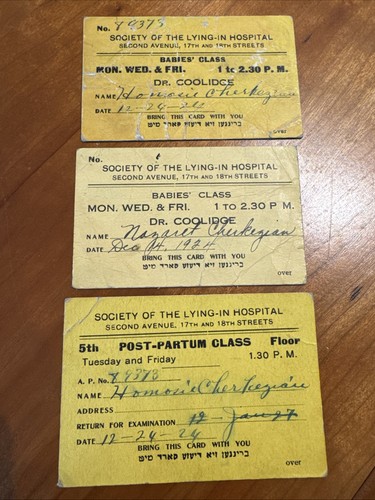 No. 79373
SOCIETY OF THE LYING-IN HOSPITAL
SECOND AVENUE, 17TH AND 18TH STREETS
BABIES' CLASS
MON. WED. & FRI. 1 to 2.30 P. M.
DR. COOLIDGE
NAME Homosie Cherkezian
DATE 12-24-24
BRING THIS CARD WITH YOU
ברינגען זיא דיעזע קארד מיט
over
No.
SOCIETY OF THE LYING-IN HOSPITAL
SECOND AVENUE, 17TH AND 18TH STREETS
BABIES' CLASS
MON. WED. & FRI. 1 TO 2.30 P M.
DR. COOLIDGE
NAME Nazaret Cherkezian
DATE Dec 24, 1924
BRING THIS CARD WITH YOU
ברינגען זיא דיעזע קארד מיט
over
SOCIETY OF THE LYING-IN HOSPITAL
SECOND AVENUE, 17TH AND 18TH STREETS
5th POST-PARTUM CLASS Floor
Tuesday and Friday 1.30 P. M.
A. P. No. 79373
NAME Homosie Cherkezian
ADDRESS
RETURN FOR EXAMINATION 12 - Jan 27
DATE 12-24-24
BRING THIS CARD WITH YOU
ברינגען זיא דיעזע קארד מיט
over